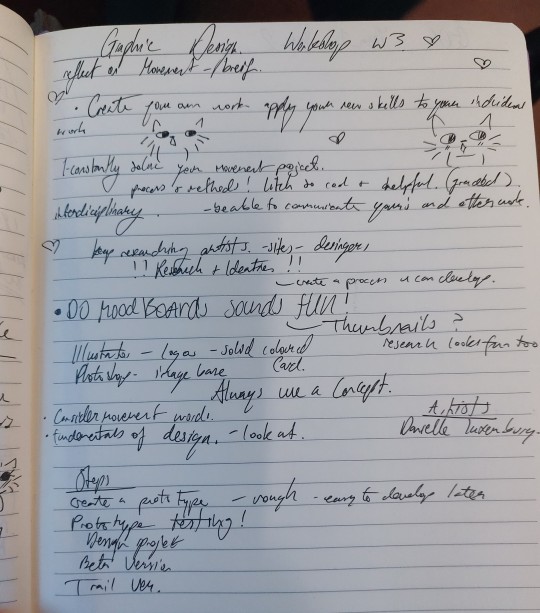 Graphic Design. Workshop W3
reflect on Movement - breif.
• Create your own work apply your new skills to your individual
work
1-constantly your movement project.
process + method! so cool + helpful. (graded)
interdisciplinary. - be able to communicate your's and others work.
keep researching artists. - sites - designers
!! Research + Identities !!
- create a process u can develop.
• DO MOOD BOARDS sounds fUN!
- Thumbnails?
research looks fun too
Illustrator - logos - solid coloured
Photoshop - image base Card.
Always use a Concept.
• Consider movement words.
• fundamentals of design. - look at.
Artists
Danielle
Steps
Create a prototype - rough - easy to develop later
Prototype testing!
Design projet
Beta Version
Trail ver.